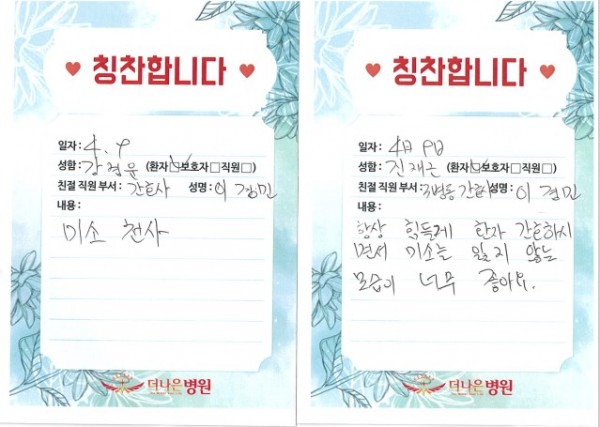 칭찬합니다
일자: 4. 9
성함: 강정윤 (환자□보호자□직원□)
친절 직원 부서: 간호사 성명: 이경민
내용:
미소 천사
더나은병원
칭찬합니다
일자: 4月 9日
성함: 진재근 (환자□보호자□직원□)
친절 직원 부서: 3병동 간호사 성명: 이경민
내용:
항상 힘들게 환자 간호하시
면서 미소는 잃지 않는
모습이 너무 좋아요.
더나은병원